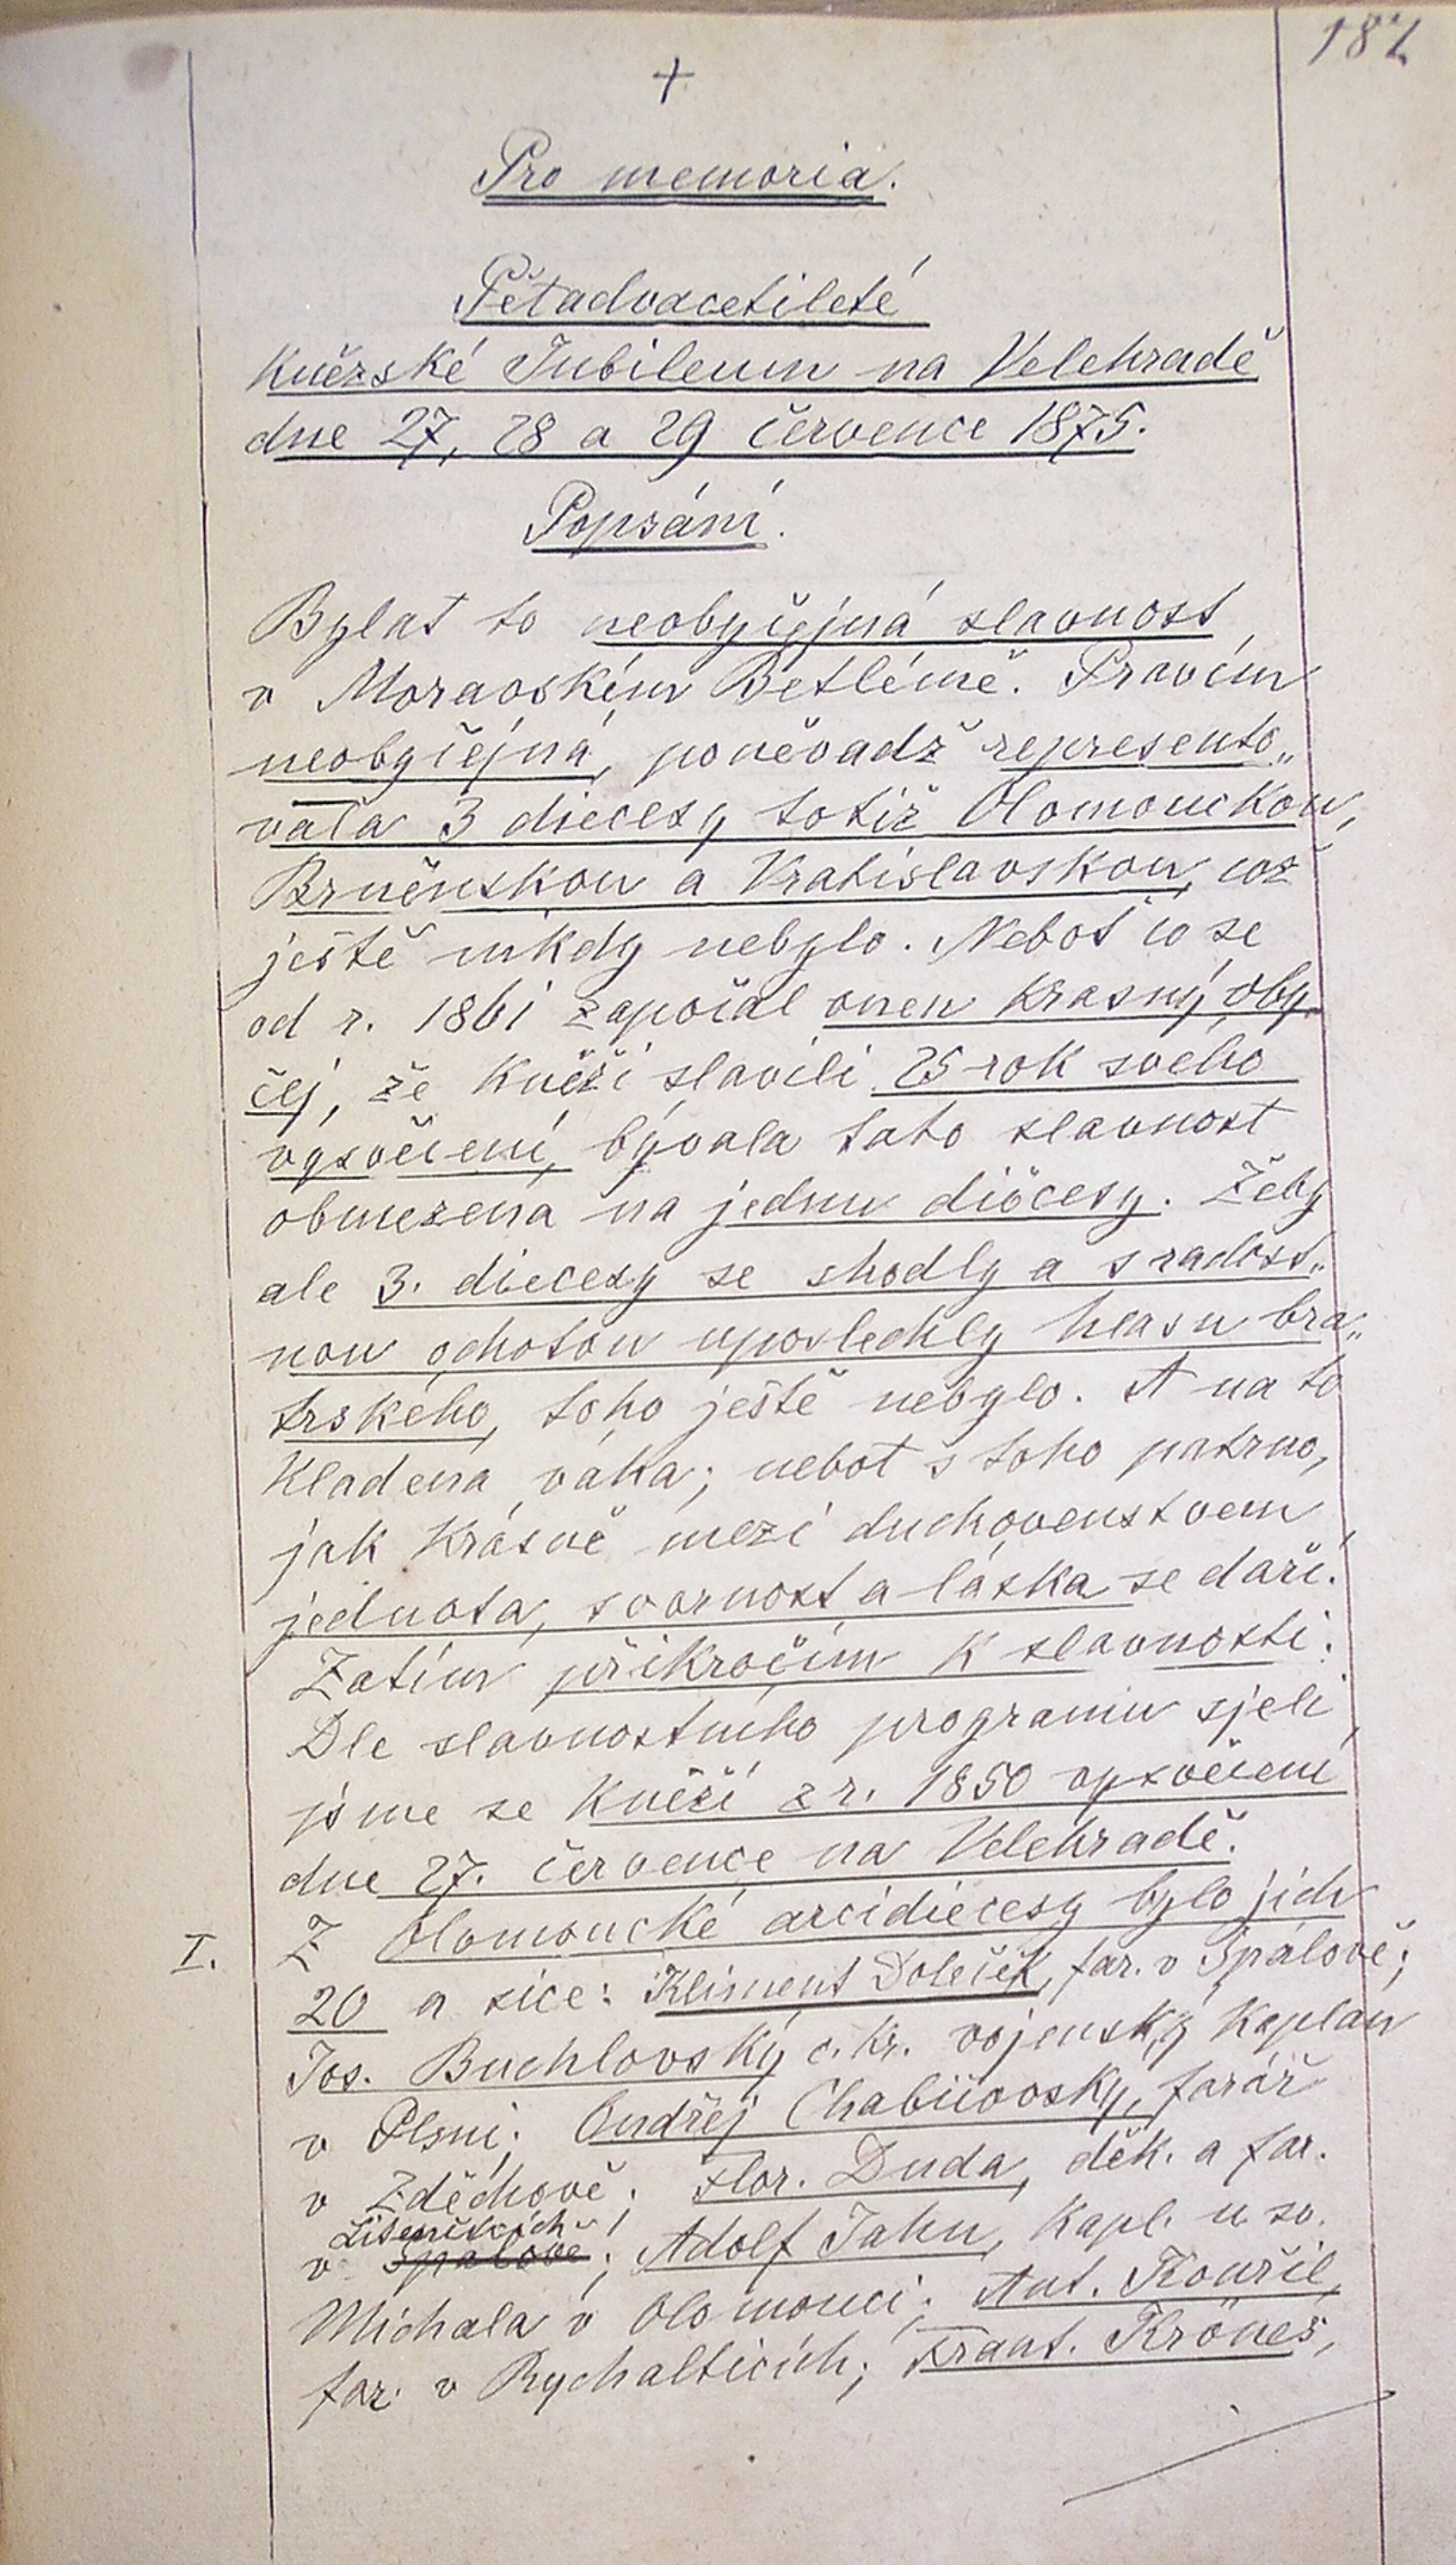 187
+
Pro memoria.
Pětadvacetileté
Kněžské Jubileum na Velehradě
dne 27, 28 a 29 července 1875.
Popsání.
Bylat to neobyčejná slavnost
v Moravském Betlémě. Pravím
neobyčejná, poněvadž represento„
vala 3 diecesy totiž Olomouckou,
Brněnskou a Vratislavskou, což
ještě nikdy nebylo. Neboť co se
od r. 1861 započal onen krasný oby„
čej, že kněži slavili 25 rok svého
vysvěcení, bývala tato slavnost
obmezena na jednu diöcesy. Žeby
ale 3. diecesy se shodly a s radost„
nou ochotou uposlechly hlasu bra„
trského, toho ještě nebylo. A na to
kladena váha; nebot s toho patrno,
jak krásně mezi duchovenstvem
jednota, svornost a láska se daří.
Zatím přikročím k slavnosti:
Dle slavnostního programu sjeli
jsme se kněží z r. 1850 vysvěcení
dne 27. července na Velehradě.
I. Z Olomoucké arcidiecesy bylo jich
20 a sice: Kliment Doleček, far. v Spálově;
Jos. Buchlovský c. kr. vojenský kaplan
v Plsni; Ondřej Chabičovský, farář
v Zděchově; Flor. Duda, děk. a far.
Lišenškcích
v Spalově; Adolf Jahn, kapl. u sv.
Michala v Olomouci; Ant. Kouřil,
far. v Rychalticích; Frant. Kröneš,